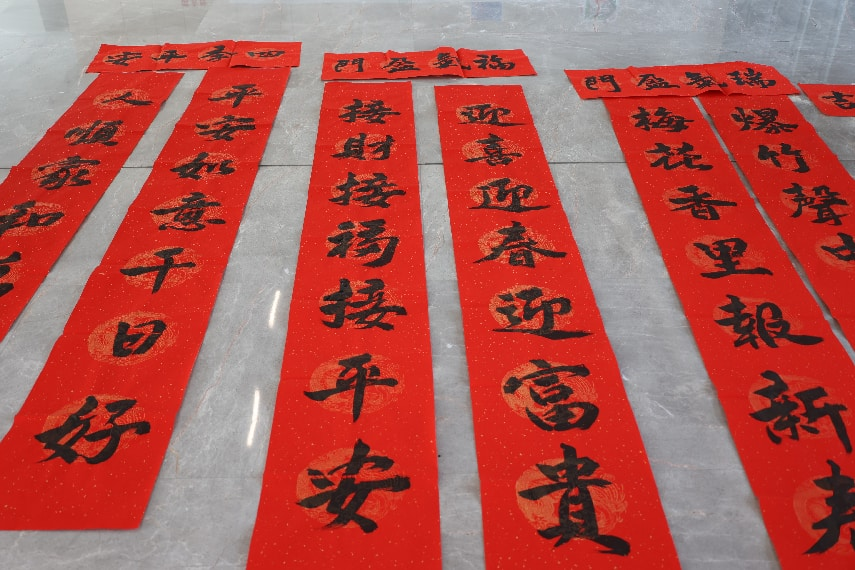 瑞氣盈門
爆竹聲中
梅花香里報新
福氣盈門
迎喜迎春迎富貴
接財接福接平安
四季平安
平安如意千日好
人順家和